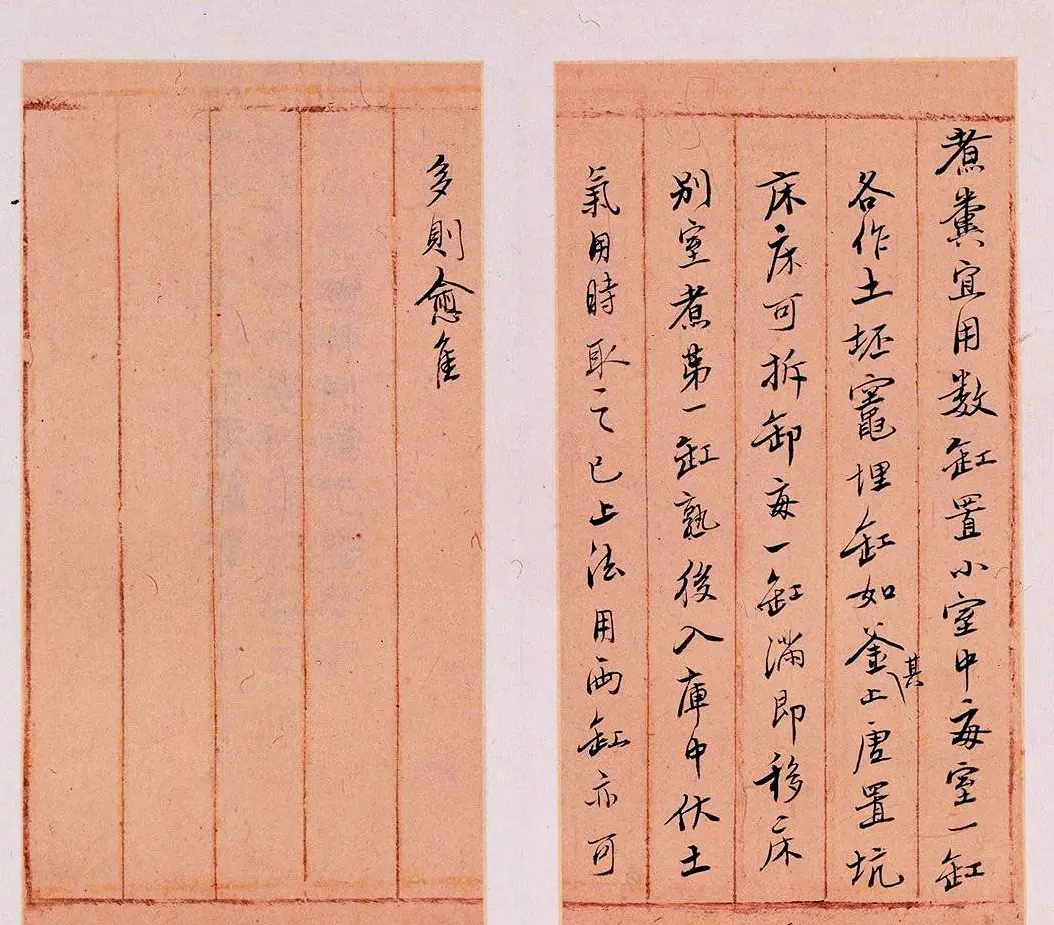 煮糞宜用数缸置小室中每室一缸
各作土坯竈埋缸如釜其上虚置坑
床床可拆卸每一缸滿即移床
别室煮第一缸熟後入庫中伏土
氣用時取之已上法用两缸亦可
多則愈隹